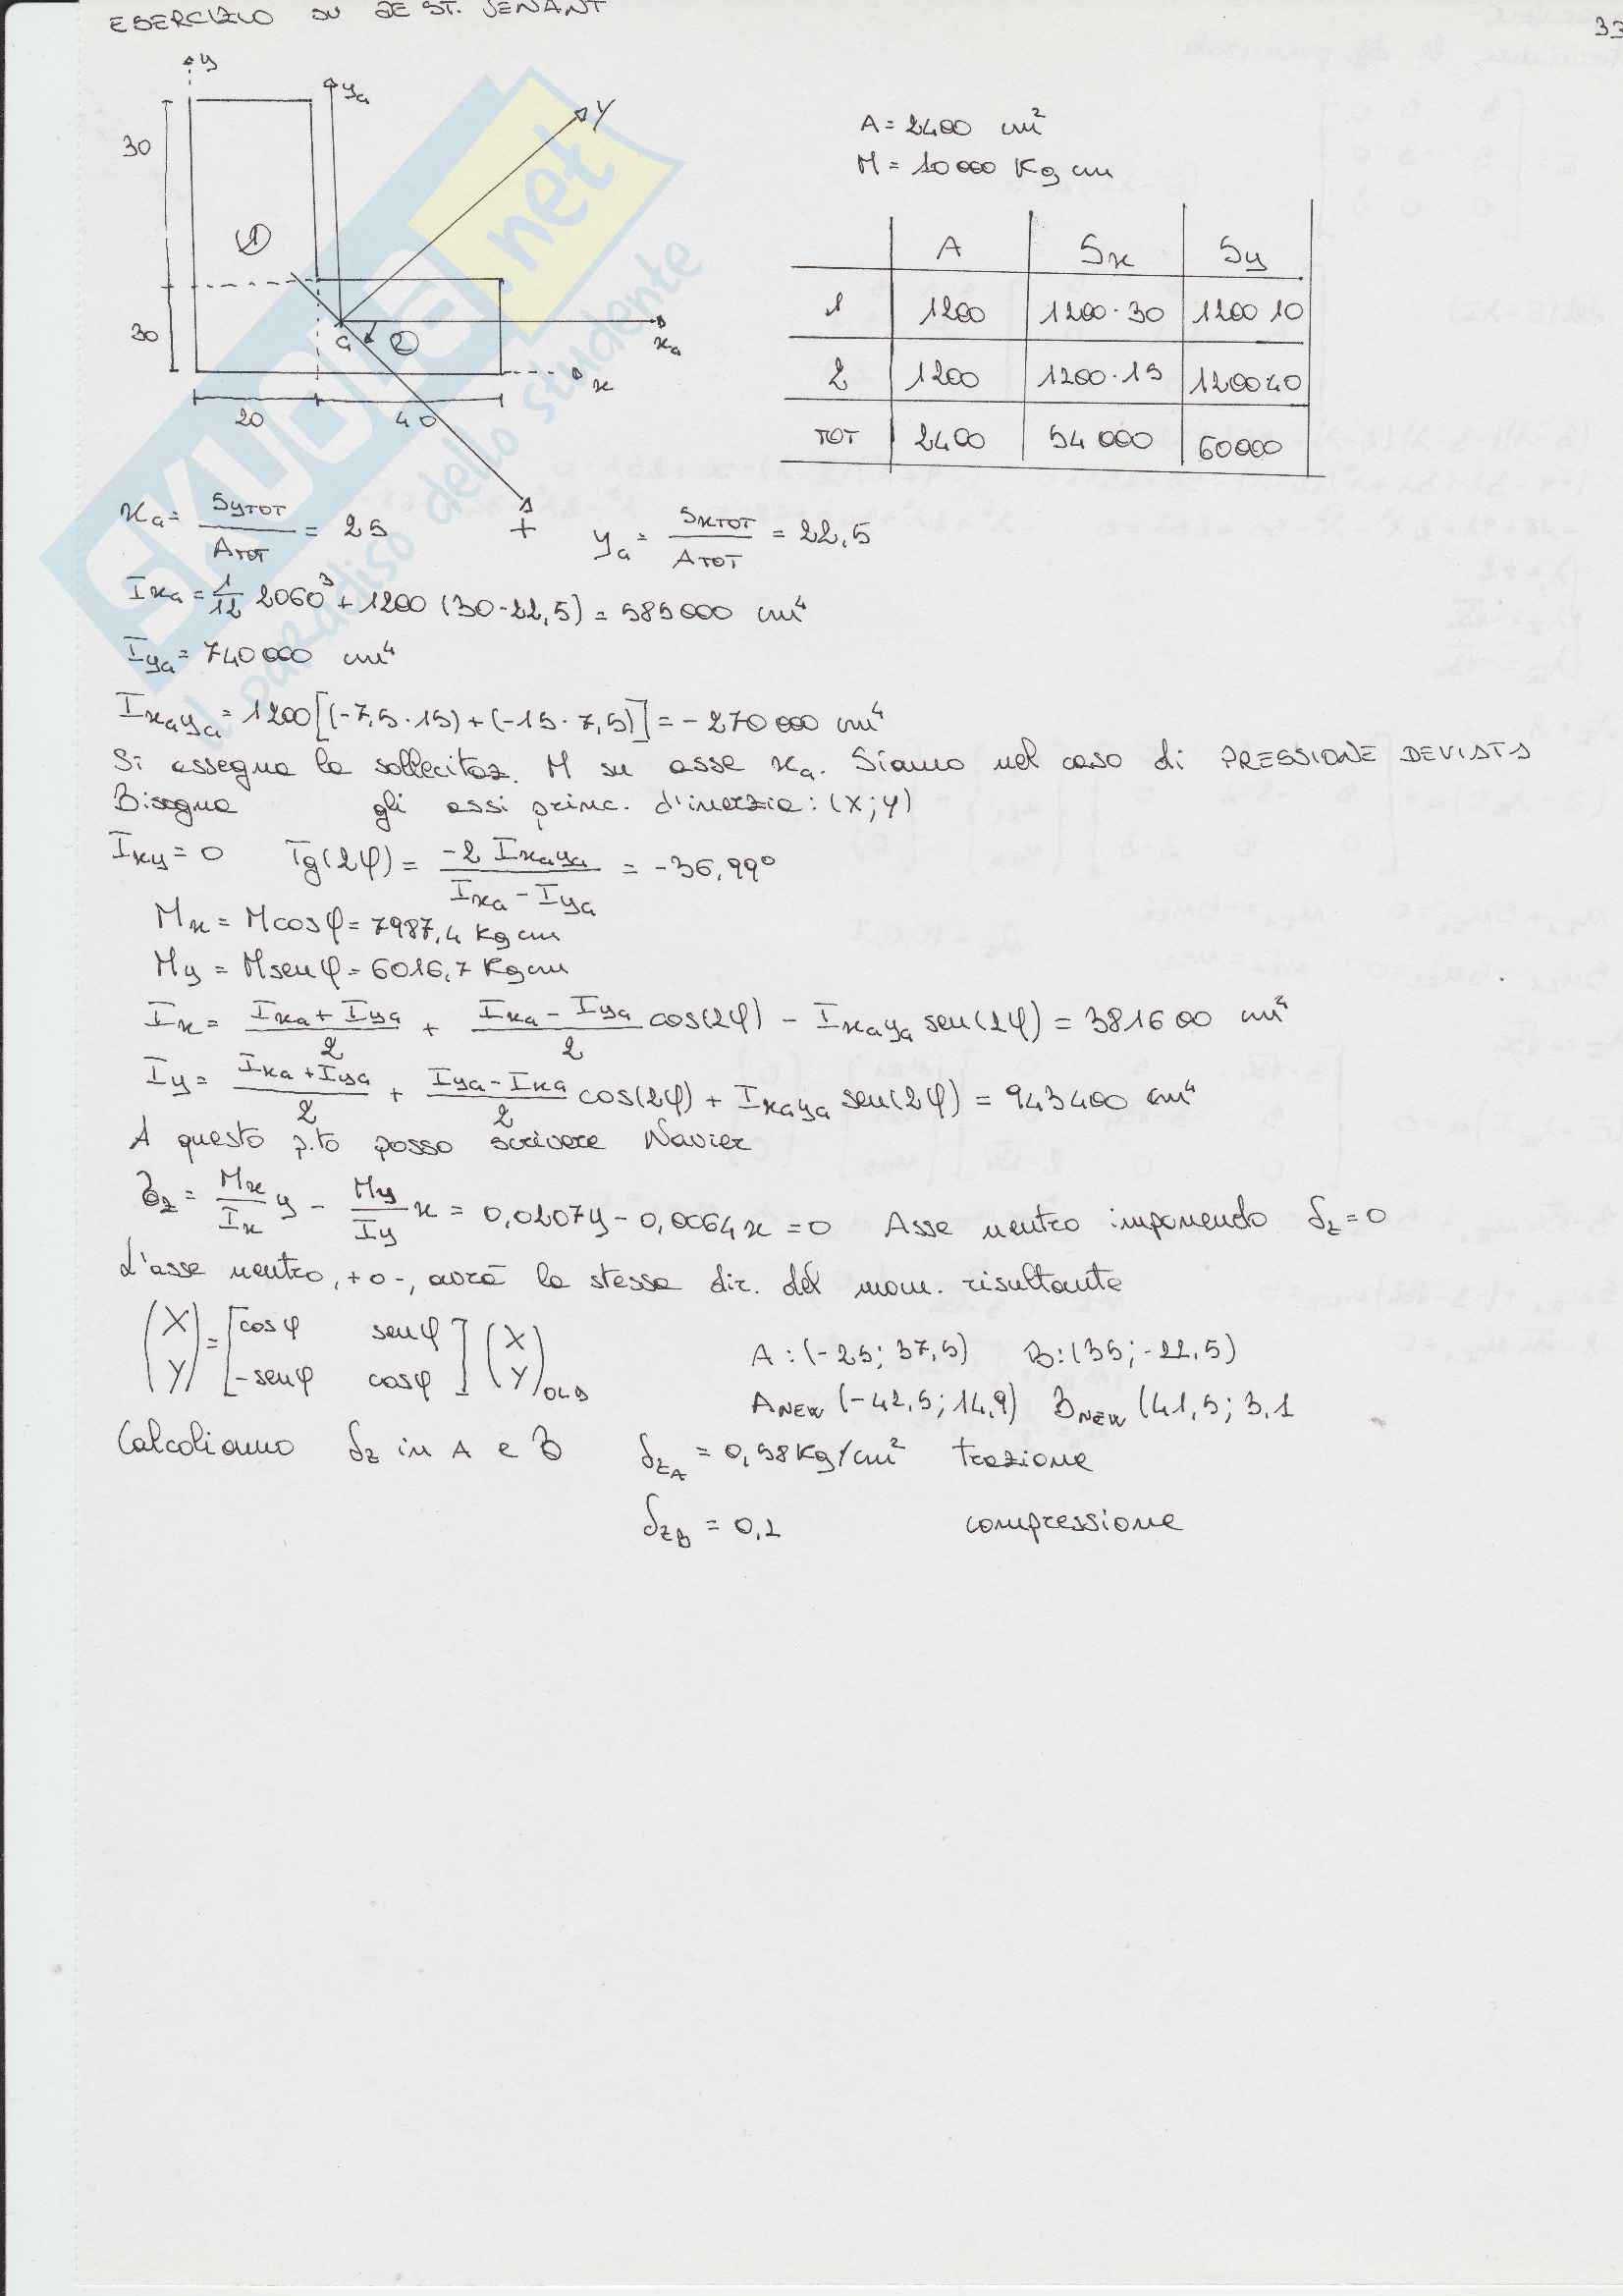 ESERCIZIO SU DE ST. VENANT
33
y
yG
Y
30
1
30
G
2
xG
x
20
40
+
A = 2400 cm²
M = 10000 Kg cm
A Sx Sy
1 1200 1200·30 1200 10
2 1200 1200·15 1200 40
TOT 2400 54000 60000
xG = SyTOT / ATOT = 25 yG = SxTOT / ATOT = 22,5
IxG = 1/12 20 60³ + 1200 (30-22,5) = 585000 cm⁴
IyG = 740000 cm⁴
IxGyG = 1200[(-7,5·15)+(-15·7,5)] = -270000 cm⁴
Si assegna la sollecitaz. M su asse xG. Siamo nel caso di PRESSIONE DEVIATA
Bisogna gli assi princ. d'inerzia: (X;Y)
Ixy = 0 Tg(2φ) = -2 IxGyG / IxG - IyG = -36,99°
Mx = M cosφ = 7987,4 Kg cm
My = M senφ = 6016,7 Kg cm
Ix = IxG + IyG / 2 + IxG - IyG / 2 cos(2φ) - IxGyG sen(2φ) = 381600 cm⁴
Iy = IxG + IyG / 2 + IyG - IxG / 2 cos(2φ) + IxGyG sen(2φ) = 943400 cm⁴
A questo p.to posso scrivere Navier
δz = Mx / Ix y - My / Iy x = 0,0207y - 0,0064x = 0 Asse neutro imponendo δz = 0
L'asse neutro, + o -, avrà la stessa dir. del mom. risultante
(X Y) = [cosφ senφ -senφ cosφ] (X Y)OLD
A: (-25; 37,5) B: (35; -22,5)
ANEW (-42,5; 14,9) BNEW (41,5; 3,1
Calcoliamo δz in A e B δzA = 0,58 Kg/cm² trazione
δzB = 0,2 compressione
SKUOLA.net
il paradiso dello studente